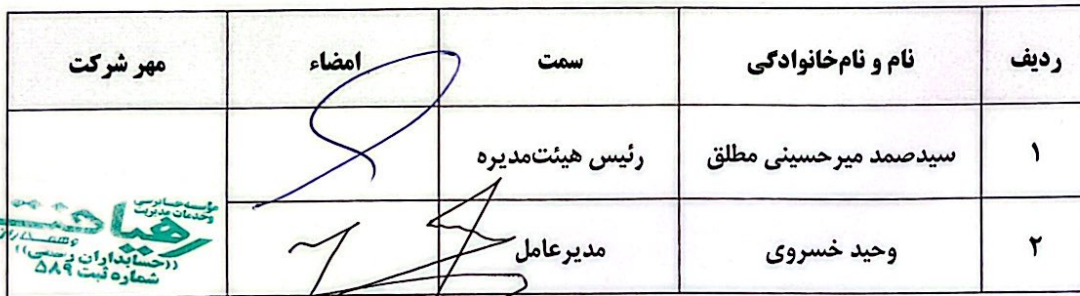 ردیف نام و نام‌خانوادگی سمت امضاء مهر شرکت
۱ سیدصمد میرحسینی مطلق رئیس هیئت‌مدیره
۲ وحید خسروی مدیرعامل
مؤسسه حسابرسی
وخدمات مدیریت
رهیافت
وهمکاران
((حسابداران رسمی))
شماره ثبت ۵۸۹